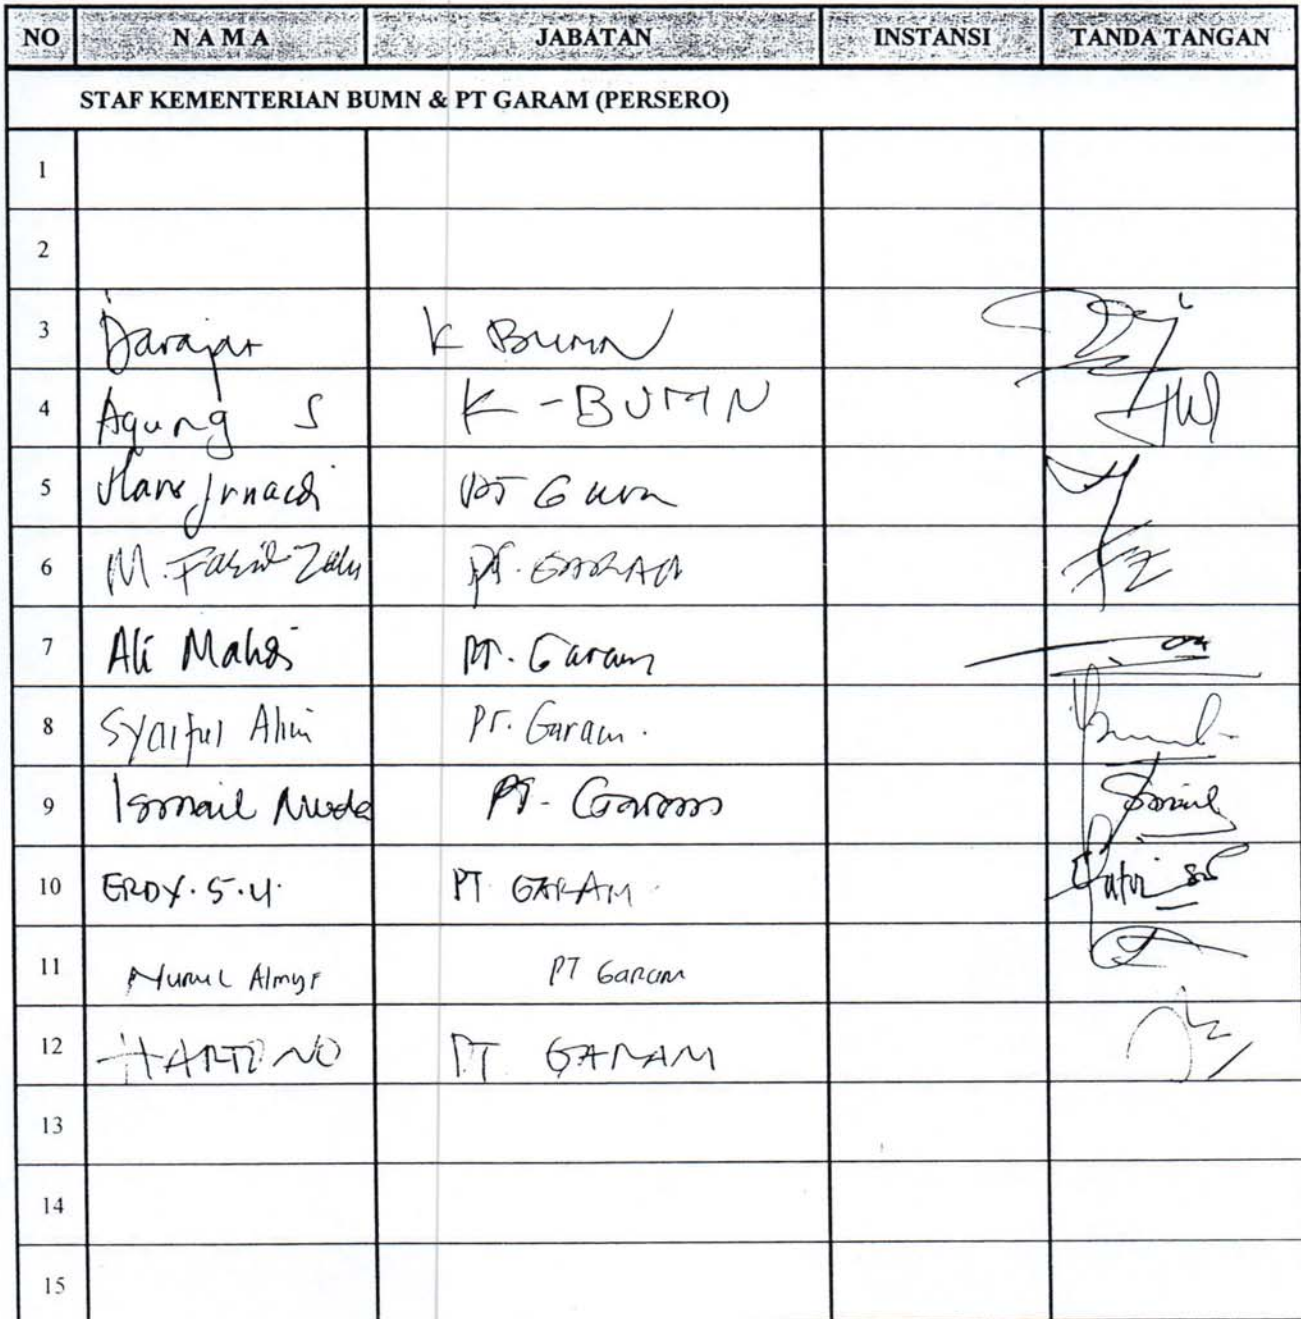 NO NAMA JABATAN INSTANSI TANDA TANGAN
STAF KEMENTERIAN BUMN & PT GARAM (PERSERO)
1
2
3 Darajat K BUMN
4 Agung S K-BUMN
5
6 M. PT. GARAM
7 Ali Mahdi PT. Garam
8 Syaiful Alim PT. Garam.
9 Ismail Muda PT. Garam
10 ERDY.S.U. PT. GARAM
11 Nurul PT Garam
12 HARTONO PT GARAM
13
14
15